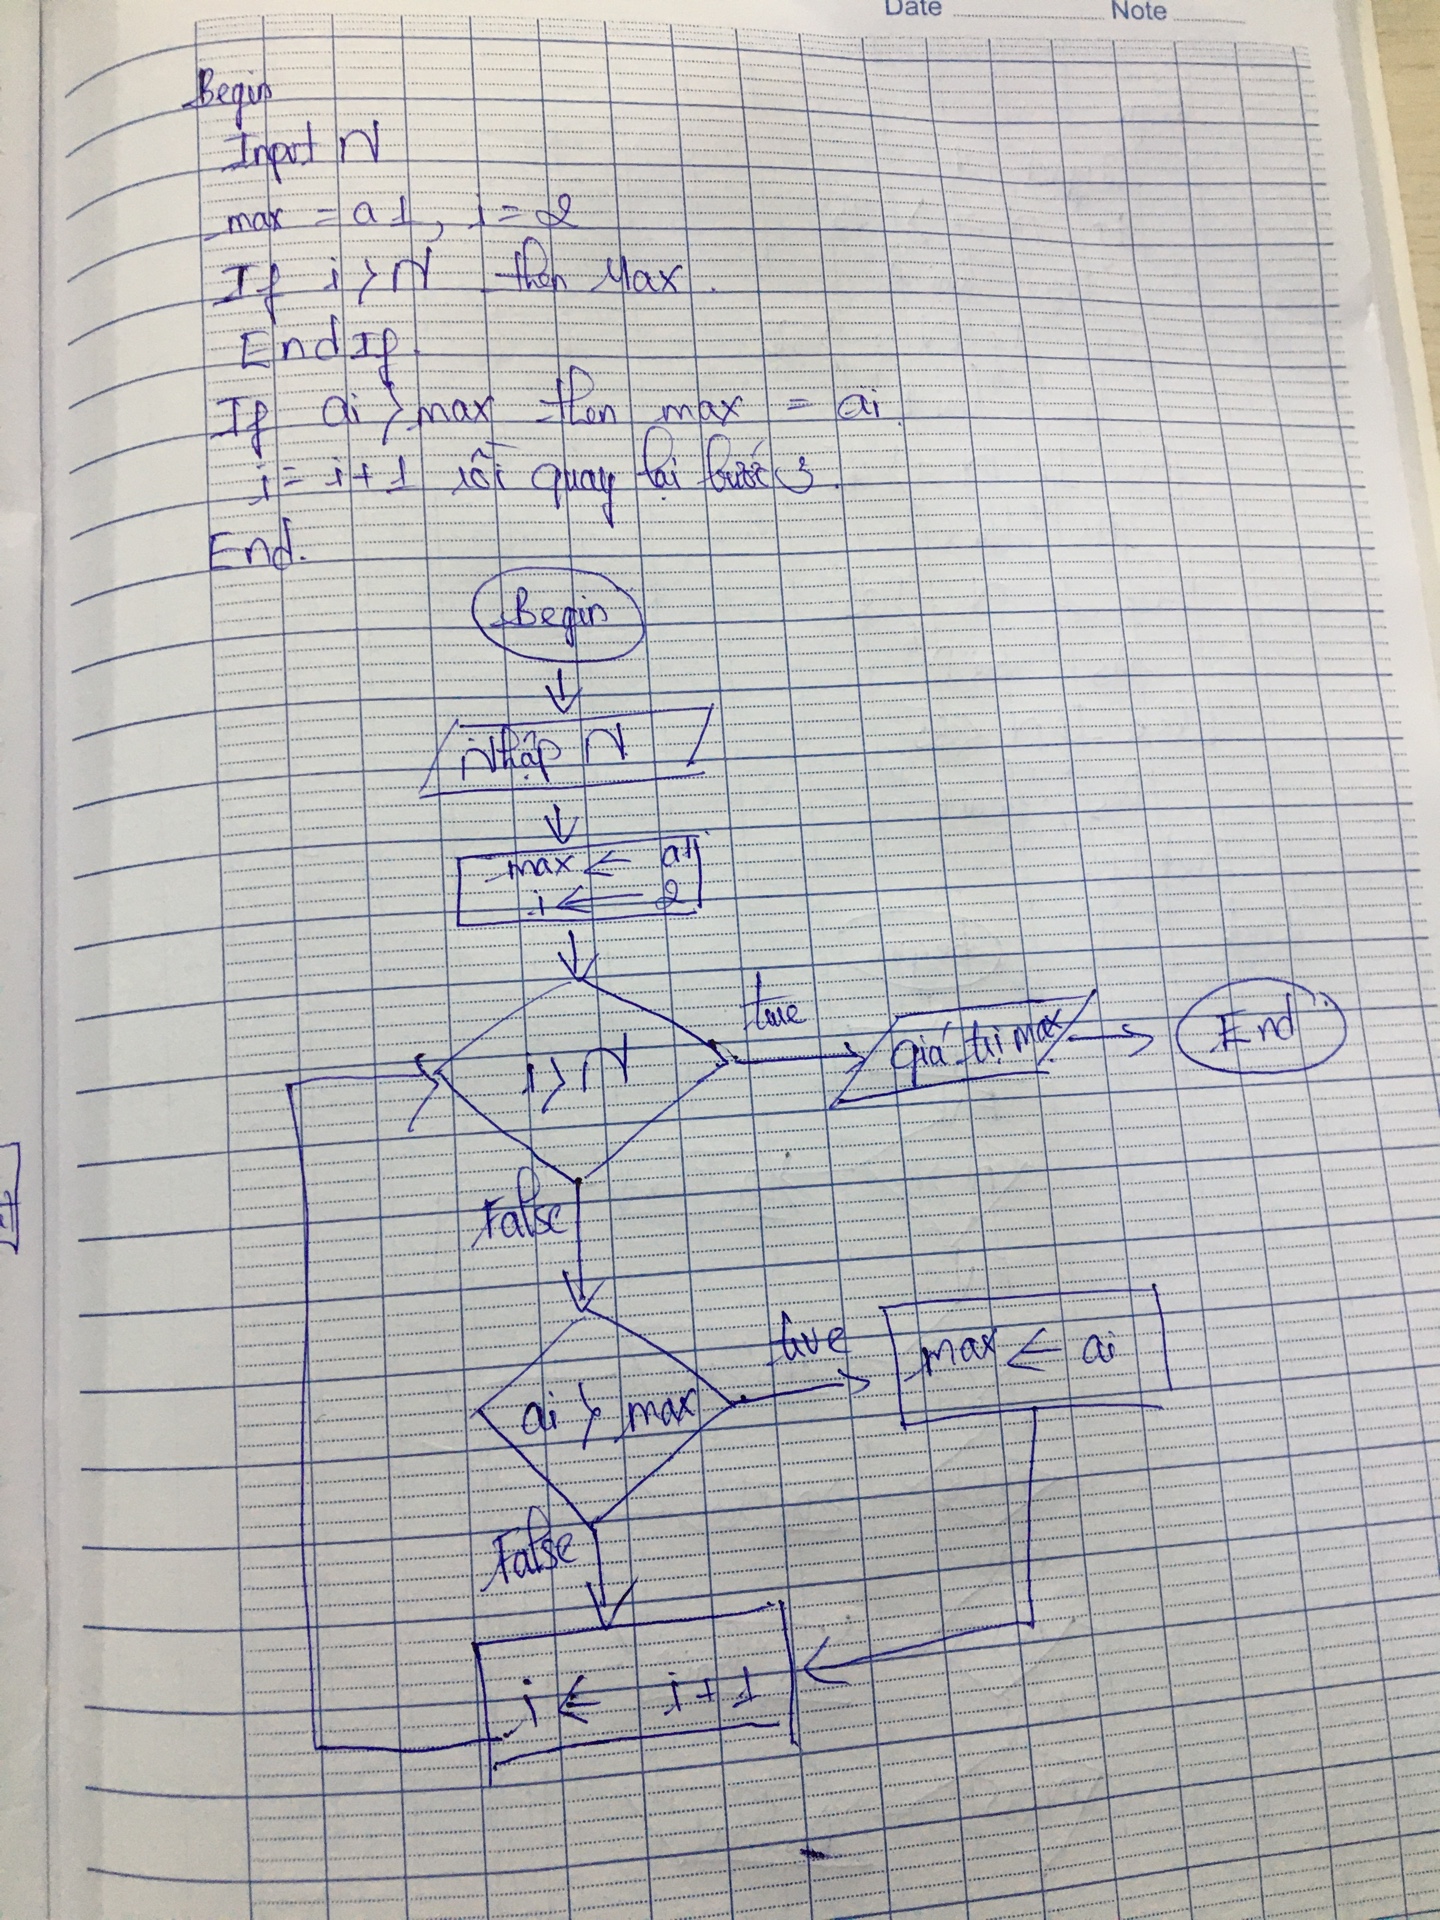 Date Note
Begin
Input N
max = a1, i = 2
If i > N then Max.
End If.
If ai > max then max = ai.
i = i+1 rồi quay lại bước 3.
End.
Begin
Nhập N
max ← a1
i ← 2
i > N
true
giá trị max
End
False
ai > max
true
max ← ai
False
i ← i+1